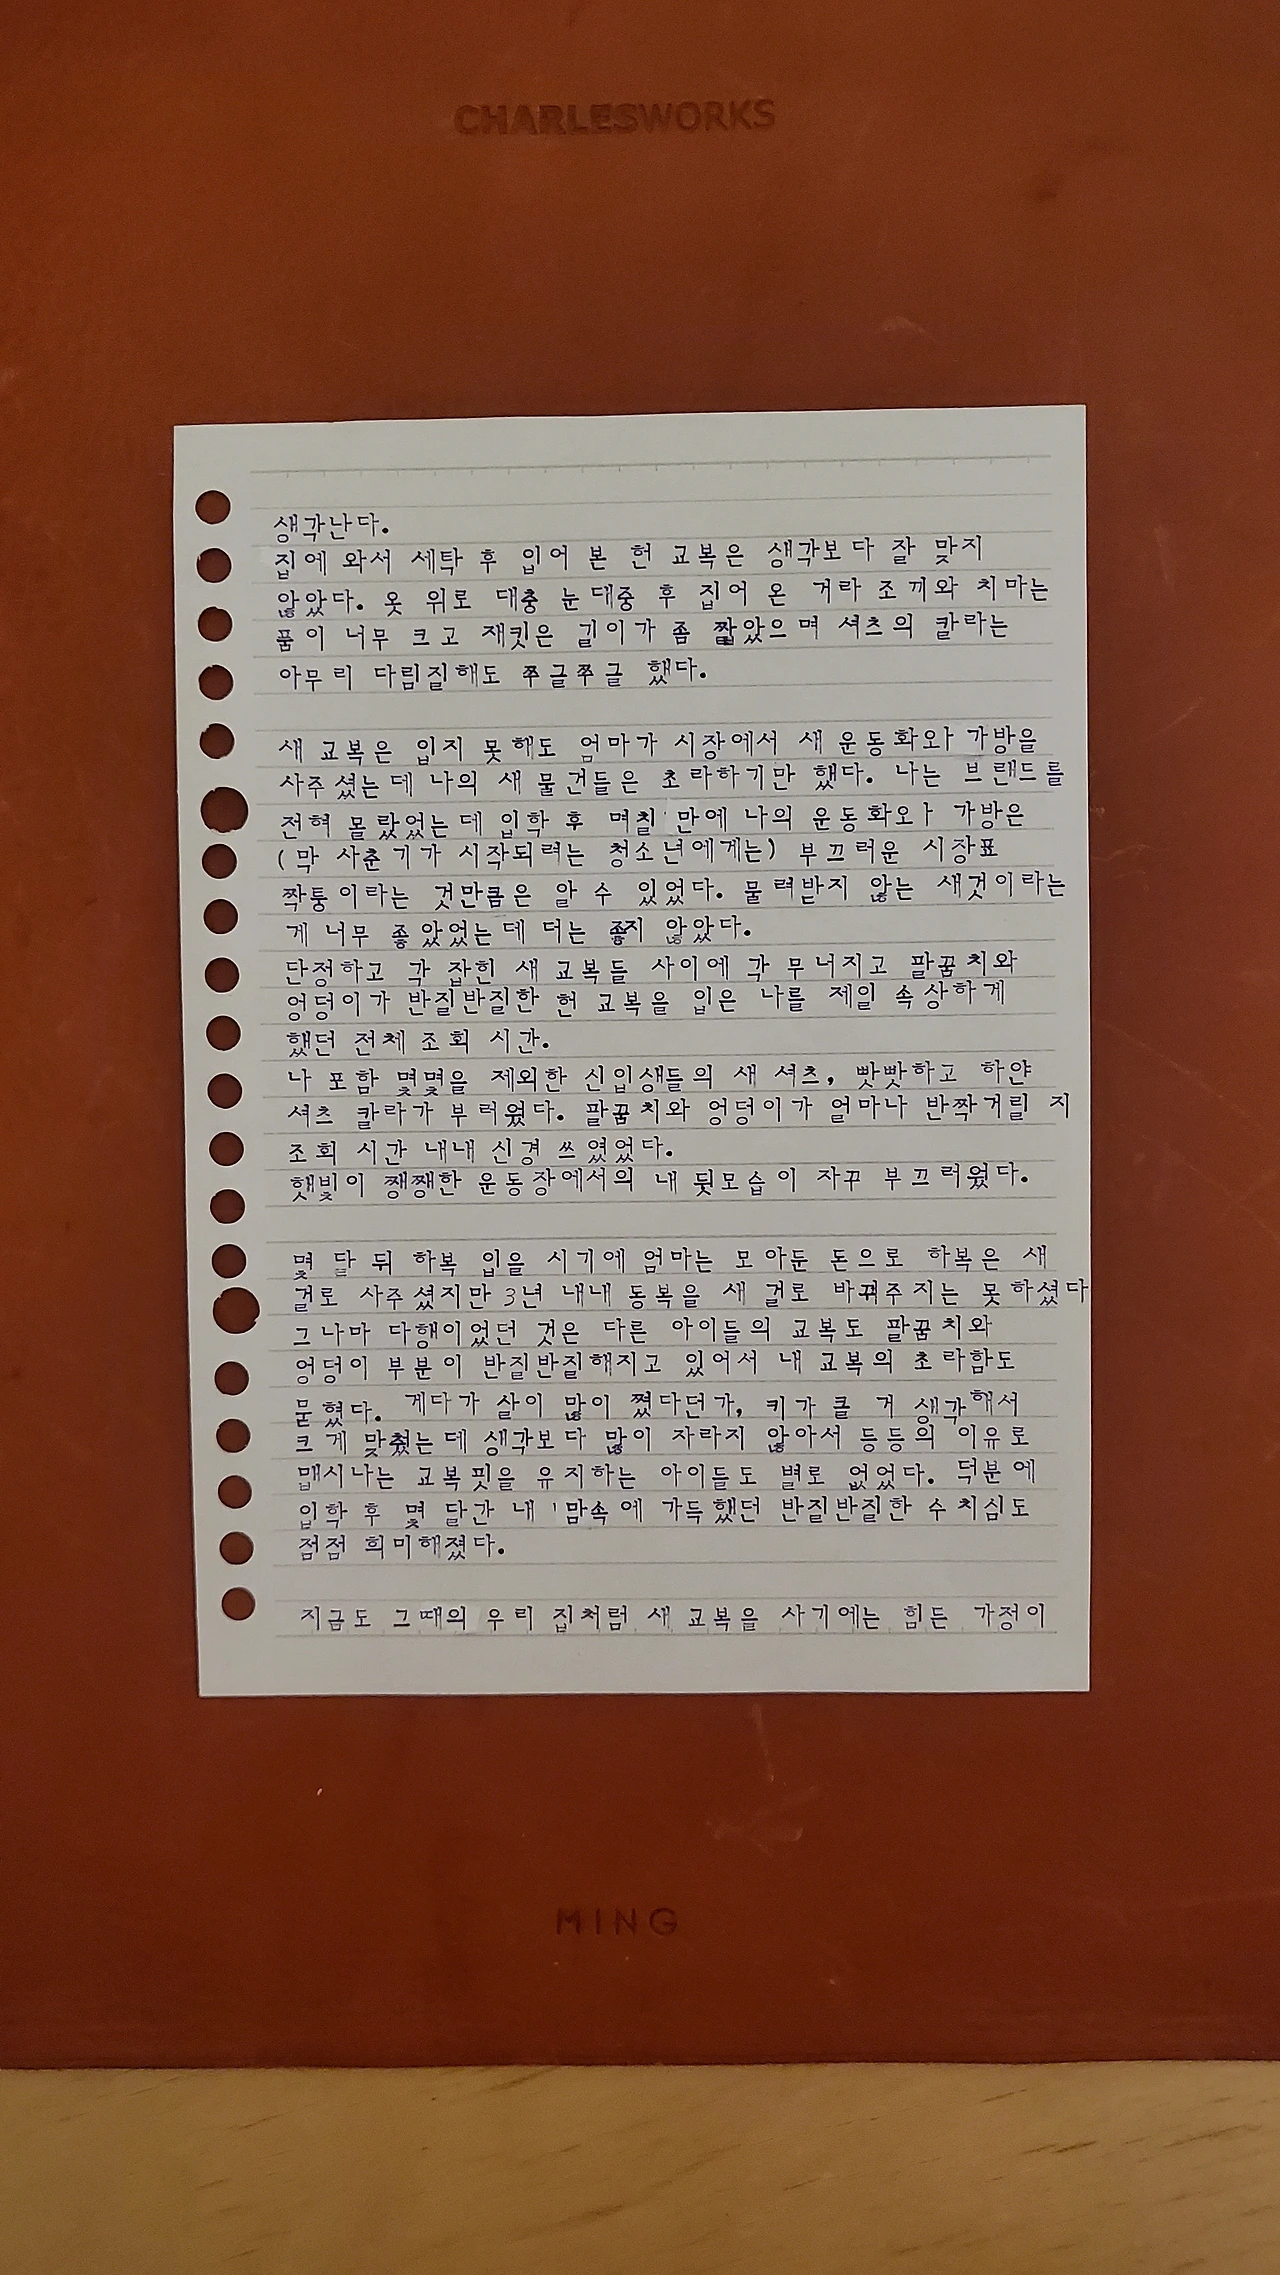 CHARLESWORKS
생각난다.
집에 와서 세탁 후 입어 본 헌 교복은 생각보다 잘 맞지
않았다. 옷 위로 대충 눈대중 후 집어 온 거라 조끼와 치마는
품이 너무 크고 재킷은 길이가 좀 짧았으며 셔츠의 칼라는
아무리 다림질해도 쭈글쭈글 했다.
새 교복은 입지 못해도 엄마가 시장에서 새 운동화와 가방을
사주셨는데 나의 새 물건들은 초라하기만 했다. 나는 브랜드를
전혀 몰랐었는데 입학 후 며칠 만에 나의 운동화와 가방은
(막 사춘기가 시작되려는 청소년에게는) 부끄러운 시장표
짝퉁이라는 것만큼은 알 수 있었다. 물려받지 않는 새것이라는
게 너무 좋았었는데 더는 좋지 않았다.
단정하고 각 잡힌 새 교복들 사이에 각 무너지고 팔꿈치와
엉덩이가 반질반질한 헌 교복을 입은 나를 제일 속상하게
했던 전체 조회 시간.
나 포함 몇몇을 제외한 신입생들의 새 셔츠, 빳빳하고 하얀
셔츠 칼라가 부러웠다. 팔꿈치와 엉덩이가 얼마나 반짝거릴 지
조회 시간 내내 신경 쓰였었다.
햇빛이 쨍쨍한 운동장에서의 내 뒷모습이 자꾸 부끄러웠다.
몇 달 뒤 하복 입을 시기에 엄마는 모아둔 돈으로 하복은 새
걸로 사주셨지만 3년 내내 동복을 새 걸로 바꿔주지는 못하셨다
그나마 다행이었던 것은 다른 아이들의 교복도 팔꿈치와
엉덩이 부분이 반질반질해지고 있어서 내 교복의 초라함도
묻혔다. 게다가 살이 많이 쪘다던가, 키가 클 거 생각해서
크게 맞췄는데 생각보다 많이 자라지 않아서 등등의 이유로
맵시나는 교복핏을 유지하는 아이들도 별로 없었다. 덕분에
입학 후 몇 달간 내 맘속에 가득했던 반질반질한 수치심도
점점 희미해졌다.
지금도 그때의 우리 집처럼 새 교복을 사기에는 힘든 가정이
MING